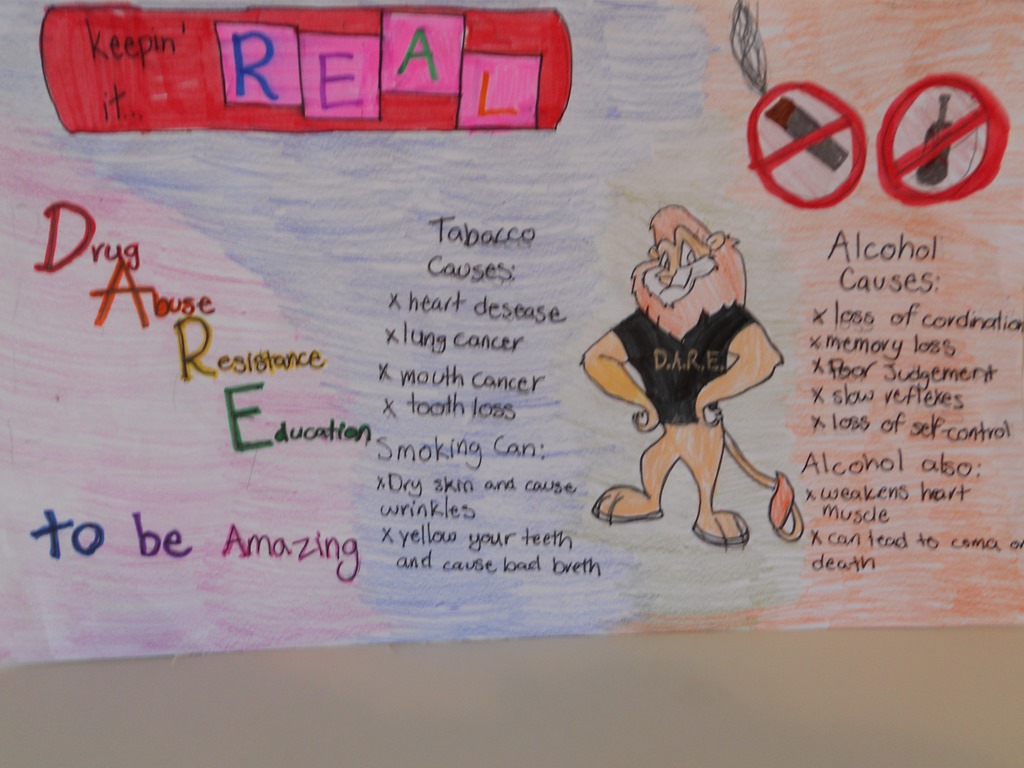 Keepin'
it...
REAL
Drug
Abuse
Resistance
Education
to be Amazing
Tabacco
Causes:
x heart desease
x lung cancer
x mouth cancer
x tooth loss
Smoking Can:
x Dry skin and cause
wrinkles
x yellow your teeth
and cause bad breth
D.A.R.E.
Alcohol
Causes:
x loss of cordination
x memory loss
x Poor Judgement
x slow reflexes
x loss of self-control
Alcohol also:
x weakens hart
muscle
x can lead to coma or
death